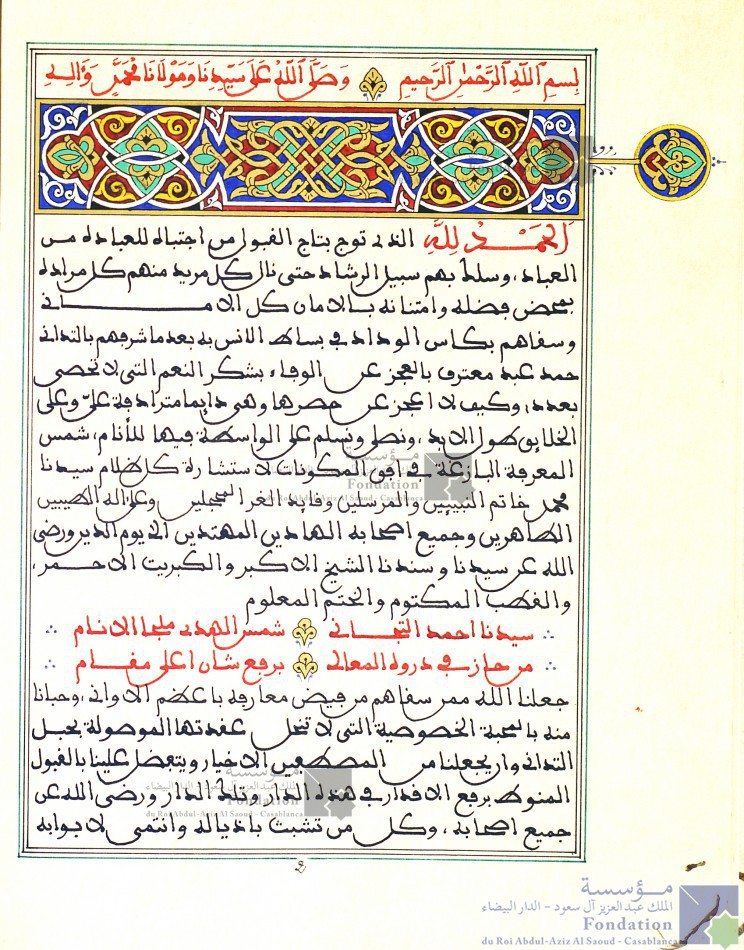 بسم الله الرحمن الرحيم وصلى الله على سيدنا ومولانا محمد وءاله
الحمد لله الذى توج بتاج القبول من اجتباه للعبادة من
العباد، وسلك بهم سبيل الرشاد حتى نال كل مريد منهم كل مراده
بمحض فضله وامتنانه بالامان كل الامانى
وسقاهم بكاس الوداد في بساط الانس به بعدما شرفهم بالتدانى
حمد عبد معترف بالعجز عن الوفاء بشكر النعم التى لا تحصى
بعدد، وكيف لا اعجز عن حصرها وهى دايما مترادفة علىّ وعلى
الخلايق طول الابد، ونصلى ونسلم على الواسطة فيها للأنام، شمس
المعرفة البازغة في افق المكونات لاستنارة كل ظلام سيدنا
محمد خاتم النبيين والمرسلين وقايد الغر المحجلين وعلى ءاله الطيبين
الطاهرين وجميع اصحابه الهادين المهتدين الى يوم الدين ورضى
الله عن سيدنا وسندنا الشيخ الاكبر والكبريت الاحمر،
والقطب المكتوم والختم المعلوم
سيدنا احمد التجانى شمس الهدى ملجا الانام
من حاز في ذروة المعالى برفع شان اعلى مقام
جعلنا الله ممن سقاهم من فيض معارفه باعظم الاوانى، وحبانا
منه بالمحبة الخصوصية التى لا تنحل عقدتها الموصولة بحبل
التدانى وان يجعلنا من المصطفين الاخيار ويتفضل علينا بالقبول
المنوط برفع الاقدار في هذه الدار وتلك الدار ورضى الله عن
جميع اصحابه، وكل من تشبث باذياله وانتمى لابوابه
2
مؤسسة
الملك عبد العزيز آل سعود - الدار البيضاء
Fondation
du Roi Abdul-Aziz Al Saoud - Casablanca